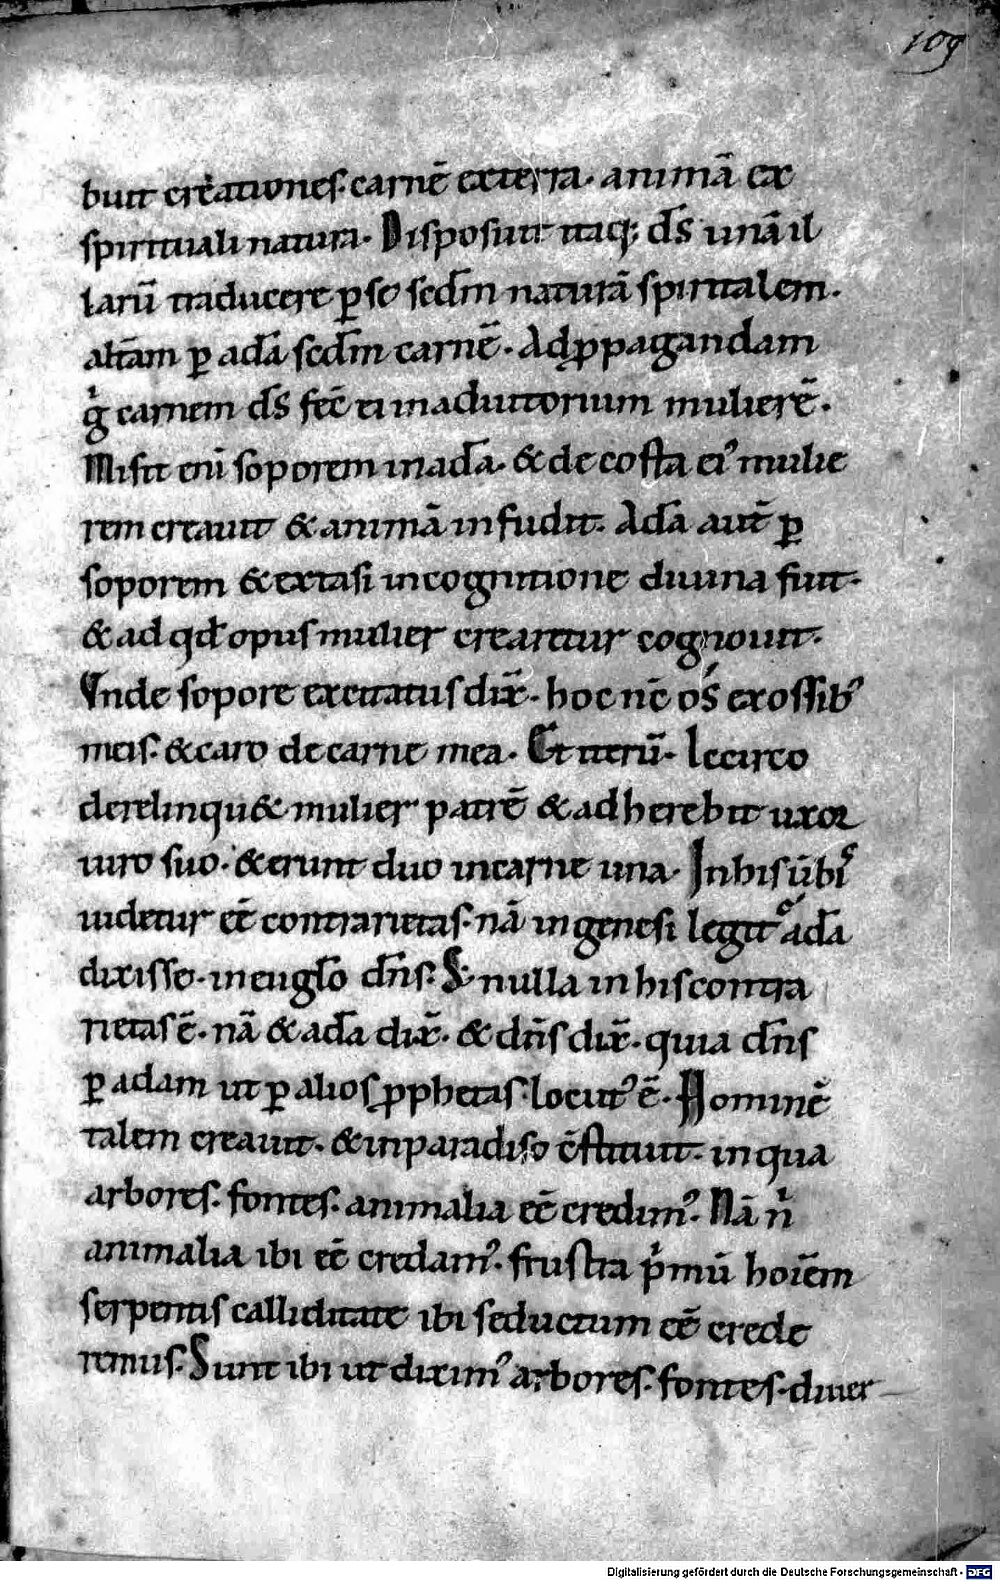 109
buit creationes. carnē ex terra. animā ex
spirituali natura. Disposuit itaq; ds̄ unā il
larū traducere ꝑ se scdm̄ naturā spiritalem.
altām ꝑ adā scdm̄ carnē. Ad ꝓpagandam
gͥ carnem ds̄ fec̄ ei in adiutorium mulierē.
Misit eni soporem in adā. & de costa ei᾽ mulie
rem creauit & animā infudit. Adā aut̄ ꝑ
soporem & extasi in cognitione diuina fuit.
& ad qd̄ opus mulier crearetur cognouit.
Vnde sopore excitatus dix̄. hoc nc̄ os ex ossib᾽
meis. & caro de carne mea. Et iterū. Iccirco
derelinqu& mulier patrē & adherebit uxor
uiro suo. & erunt duo in carne una. In his ūbis
uidetur eē contrarietas. nā in genesi legit᾽ adā
dixisse. in euglo dn̄s. S; nulla in his contra
rietas ē. nā & adā dix̄. & dn̄s dix̄. quia dn̄s
ꝑ adam ut ꝑ alios ꝓphetas locut᾽ ē. Hominē
talem creauit. & in paradiso cstituit. in qua
arbores. fontes. animalia eē credim᾽. Nā nͥ
animalia ibi eē credam᾽. frustra pͥmū hoiēm
serpentis calliditate ibi seductum eē crede
remus. Sunt ibi ut dixim᾽ arbores. fontes. diuer
Digitalisierung gefördert durch die Deutsche Forschungsgemeinschaft - DFG